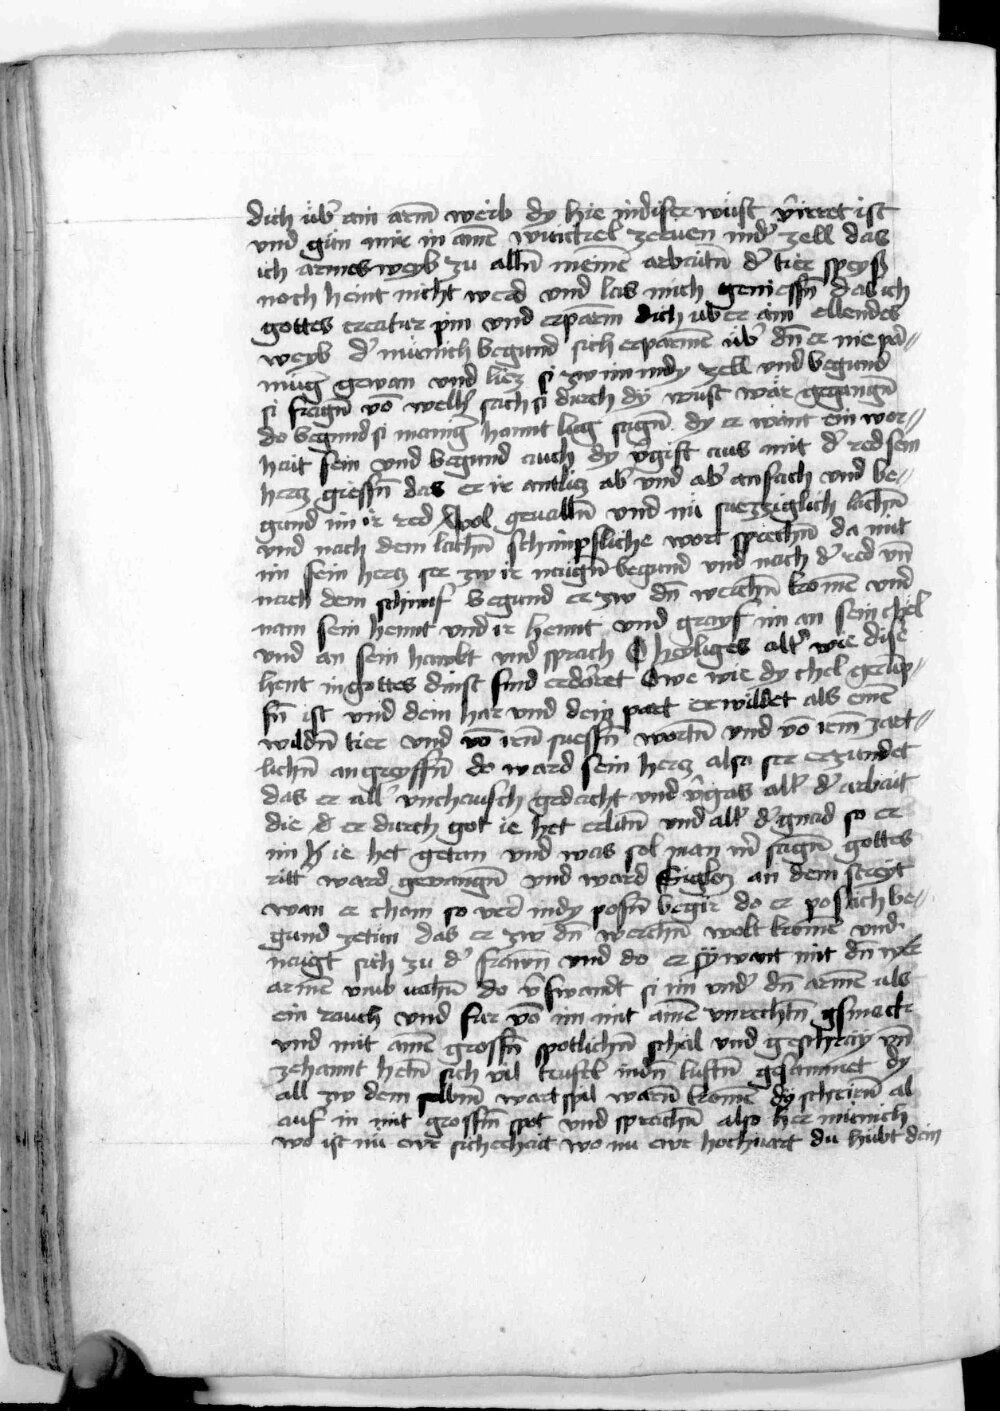 dich üb̉ ain arm̄ weib dy hie in diser wüst v̉irret ist
vnd gün mir in ainē winckel zeruen in d̉ zell das
ich armes weyb zu alln̄ meinē arbaitn̄ d̉ tier speyß
noch heint nicht werd vnd las mich geniessn̄ das ich
gottes creatur pin vnd erparm dich über ain ellendes
weyb d̉ münich begund sich erparmē üb̉ dn̄ er nie pa᷑=
mūg gewan vnd liez si zw im in dy zell vnd begund
si fragn̄ vō well̉ sach si durch dy wüst wär gegangn̄
do begund si manig̉ hannt lug sagn̄ dy er want ein wor=
hait sein vnd begund auch dy v̉gift aus mit d̉ red sein
hercz giessn̄ das er ir antlicz ab̉ vnd ab̉ ansach vnd be=
gund im ir red wol geualln̄ vnd nü suezziglich lachn̄
vnd nach dem lachn̄ schimpfliche wort sprechn̄ da mit
im sein hercz ser zw ir naign̄ begund vnd nach d̉ red vn̄
nach dem schimf begund er zw dn̄ werchn̄ komē vnd
nam sein hennt vnd ir hennt vnd grayf im an sein chel
vnd an sein hawbt vnd sprach O heyliges alt̉ wie dise
hent in gottes dinst sind erdorret Owe wie dy chel gerūp=
fn̄ ist vnd dein har vnd dein part erwildet als einē
wildn̄ tier vnd vō irn̄ suessn̄ wortn̄ vnd vō irem̄ zart=
lichn̄ angreyffn̄ do ward sein hercz also ser erzundet
das er all̉ vncheusch gedacht vnd v̉gas all̉ d̉ arbait
die er durch got ie het erlitn̄ vnd all̉ d̉ gnad so er
im ie het getan vnd was sol man m̉ sagn̄ gottes
ritt̉ ward geuangn̄ vnd ward siglos an dem streyt
wan er chom so ver̉ in dy posn̄ begir do er poslich be=
gund zetün das er zw dn̄ werchn̄ wolt komē vnd
naigt sich zu d̉ frawn vnd do er sy want mit dn̄
armē vmbuahn̄ do v̉swandt si im vnd̉ dn̄ armē als
ein rauch vnd fur vō im mit ainē vnrechtn̄ gsmackt
vnd mit ainē grossn̄ spotlichn̄ schal vnd geschray vn̄
zehannt hetn̄ sich vil teufel in dn̄ luftn̄ gesammet dy
all zw dem selbm̄ wart spil warn̄ komē dy schrirn̄ al
auf in mit grossm̄ spot vnd sprachn̄ also her münich
wo ist nü ewr sicherhait wo nu ewr hochuart du hübt dein